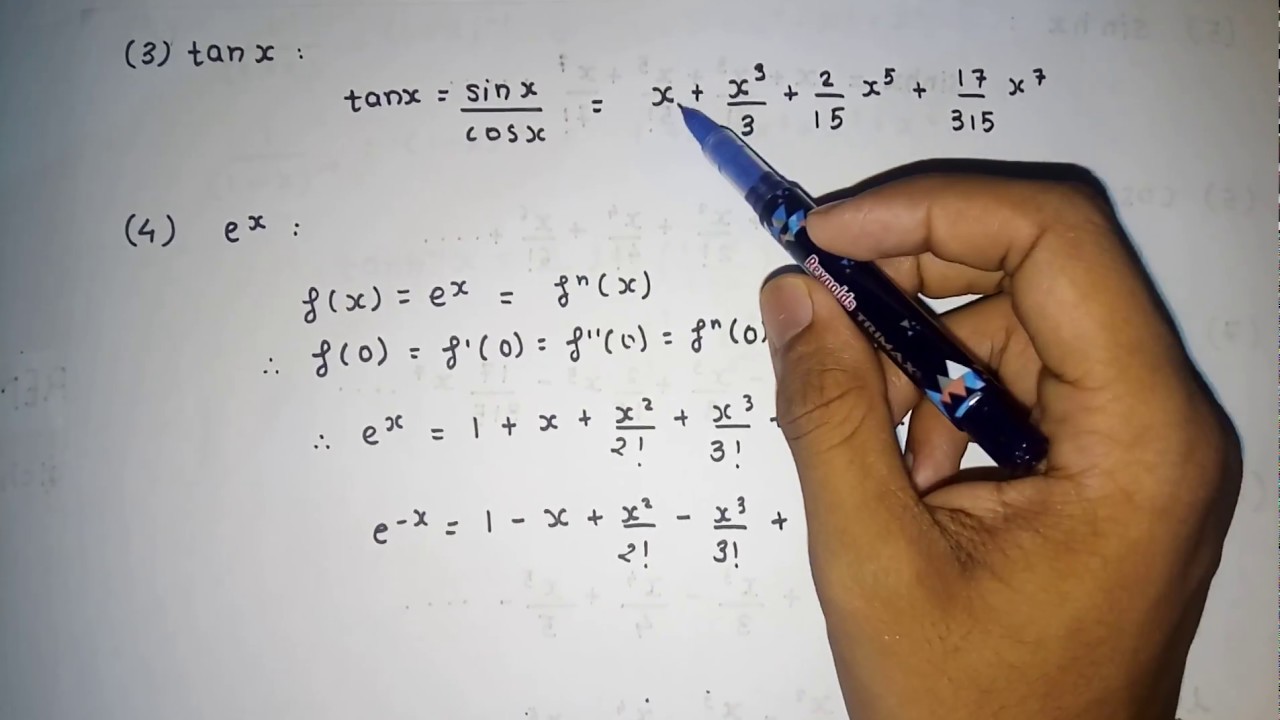 (3) tan x :
tanx = sin x / cos x = x + x³/3 + 2/15 x⁵ + 17/315 x⁷
(4) eˣ :
f(x) = eˣ = fⁿ(x)
∴ f(0) = f'(0) = f''(0) = fⁿ(0)
∴ eˣ = 1 + x + x²/2! + x³/3! +
e⁻ˣ = 1 - x + x²/2! - x³/3! +
Reynolds TRIMAX